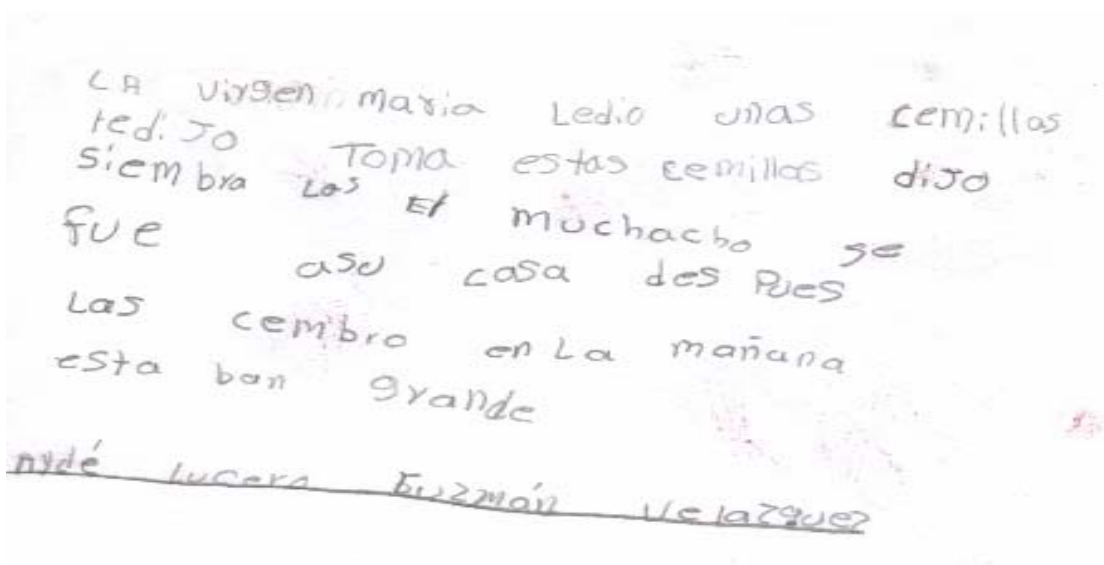 LA virgen maria Ledio unas cemillas
ledijo Toma estas cemillas dijo
siembra Las El muchacho se
fue asu casa des Pues
Las cembro en La mañana
esta ban grande
nydé lucero Guzmán Velazquez